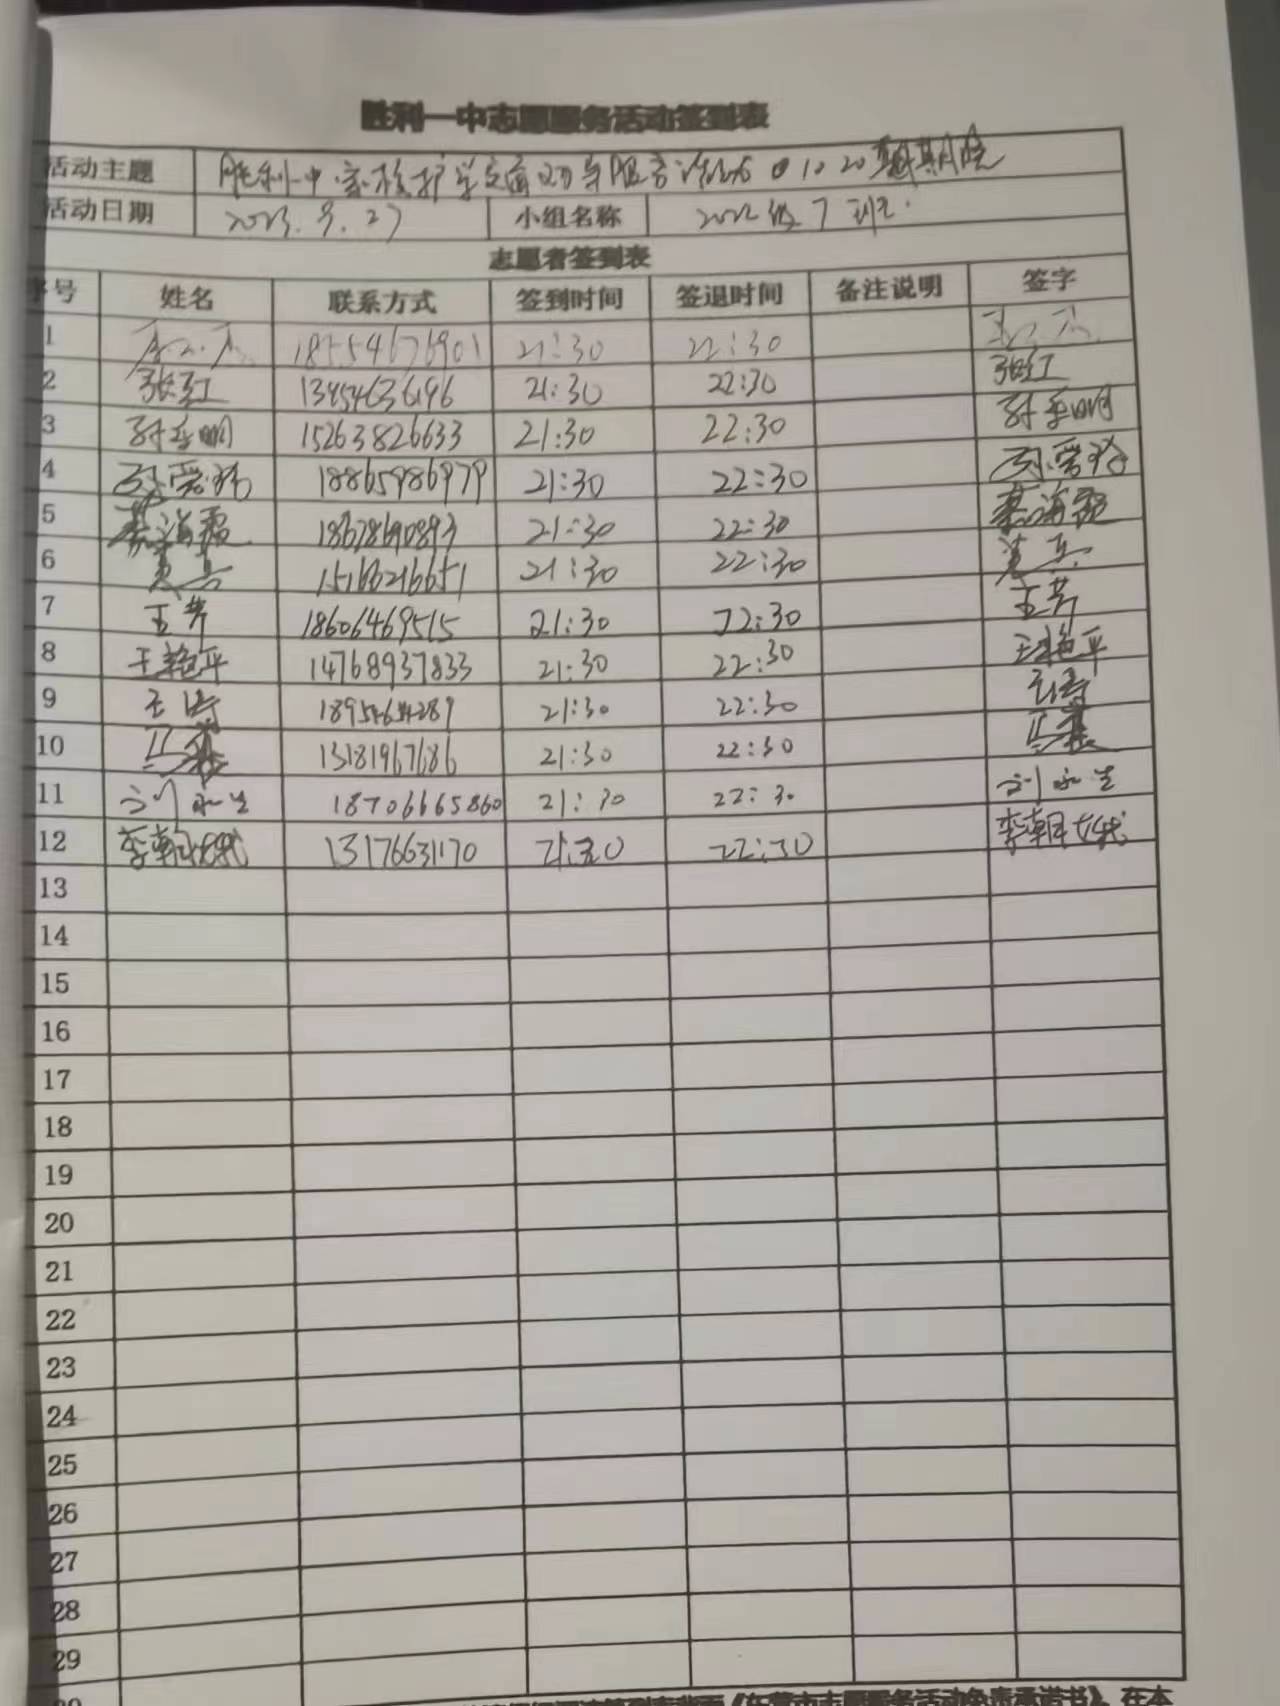 胜利一中志愿服务活动签到表
活动主题 胜利一中家校护学交通劝导服务活动
活动日期 2023.9.27 小组名称 2022级7班
志愿者签到表
序号 姓名 联系方式 签到时间 签退时间 备注说明 签字
1 18554676901 21:30 22:30
2 张红 13454636196 21:30 22:30 张红
3 21:30 22:30
15263826633
4 18865986979 21:30 22:30
5 18678690893 21:30 22:30
6 15166216651 21:30 22:30
7 王芳 18606469515 21:30 22:30 王芳
8 王艳平 14768937833 21:30 22:30 王艳平
9 21:30 22:30
10 13181967686 21:30 22:30
11 刘永生 18706665860 21:30 22:30 刘永生
12 13176631170 21:30 22:30
13
14
15
16
17
18
19
20
21
22
23
24
25
26
27
28
29
《东营市志愿服务活动免责承诺书》，在本